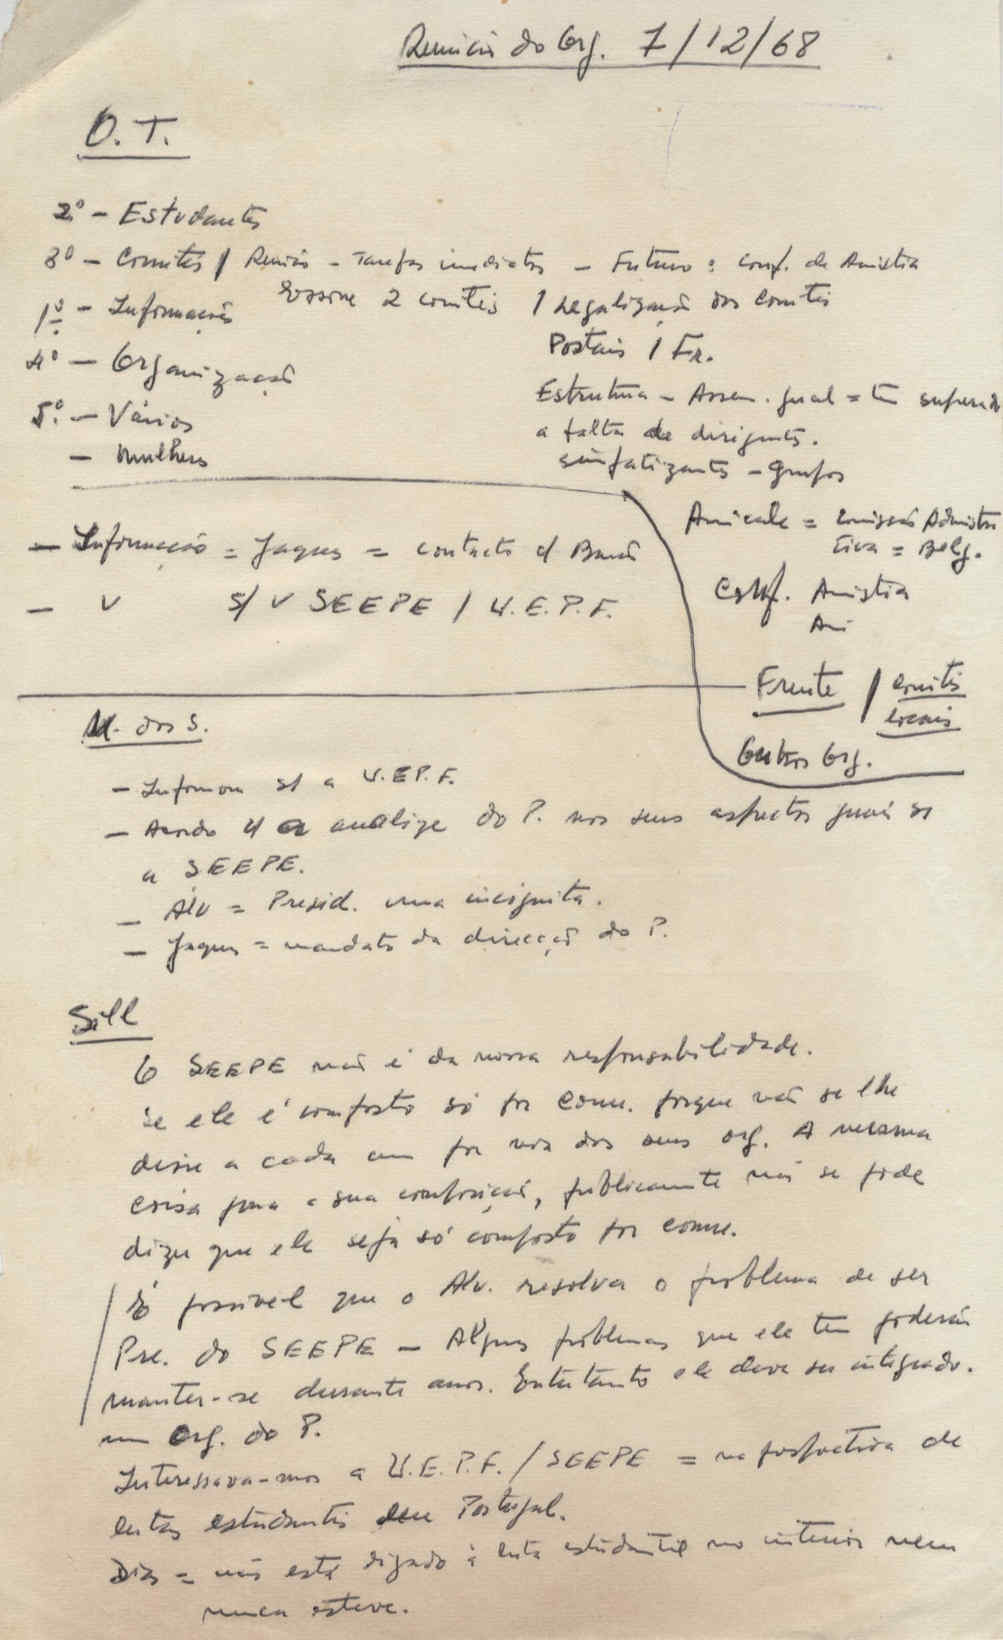 Reunião do Org. 7/12/68
O. T.
2º - Estudantes
3º - Comités / Reunião - Tarefas imediatas - Futuro: conf. de Amistia
Essone 2 comités / Legalização dos Comités
1º - Informações
Postais / Fr.
4º - Organização
Estrutura - Assem. geral = superior
5º. - Vários
a falta de dirigentes.
- Mulheres
simpatizantes - Grupos
Amicale = Comissão Administra
tiva = Belg.
- Informação = Jaques = contacto c/
- V s/ V SEEPE / U.E.P.F.
Conf. Amistia
Frente / Comités
locais
Outros Org.
dos S.
- Informou s/ a U.E.P.F.
- Acordo c/ a analise do P. nos seus aspectos gerais s/
a SEEPE.
- Álv = Presid. uma incógnita.
- Jaques = mandato da direcção do P.
Sill
O SEEPE não é da nossa responsabilidade.
Se ele é composto só por comu. porque não se lhe
disse a cada um por via dos seus org. A mesma
coisa para a sua composição, publicamente não se pode
dizer que ele seja só composto por comu.
É possivel que o Alv. resolva o problema de ser
Pre. do SEEPE - Alguns problemas que ele tem poderão
manter-se durante anos. Entretanto ele deve ser integrado.
num Org. do P.
Interessava-nos a U.E.P.F. / SEEPE = na perspectiva de
lutas estudantis em Portugal.
Dias = não está ligado à luta estudantil no interior nem
nunca esteve.